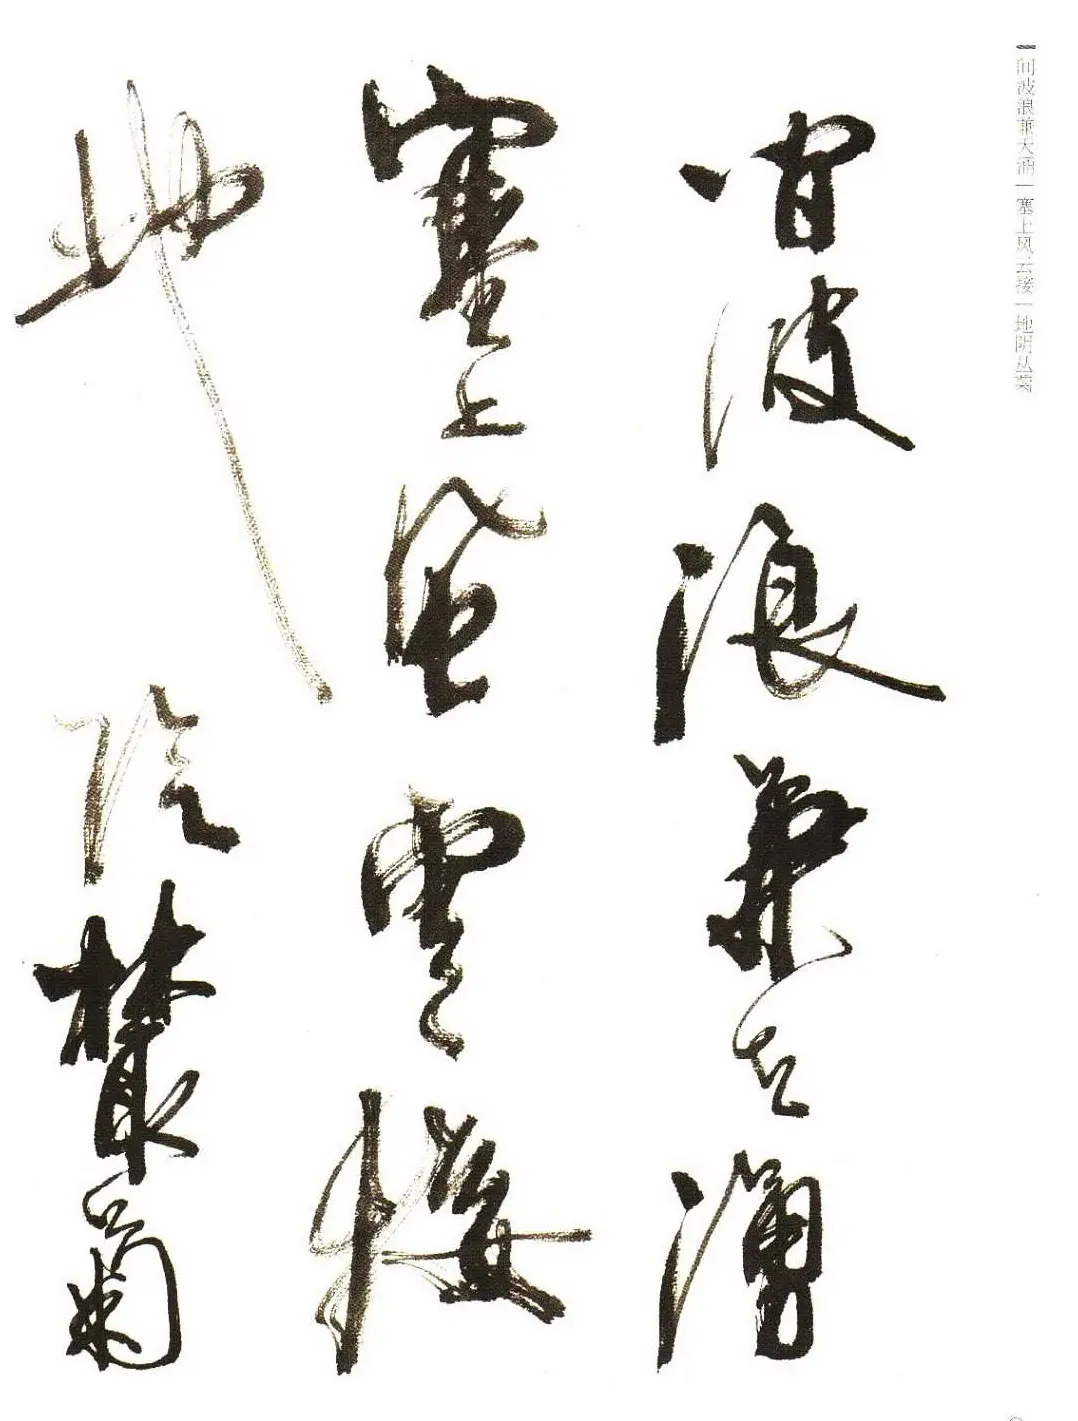 间波浪兼天涌｜塞上风云接｜地阴丛菊
间波浪兼天湧
塞上風雲接
地陰叢菊